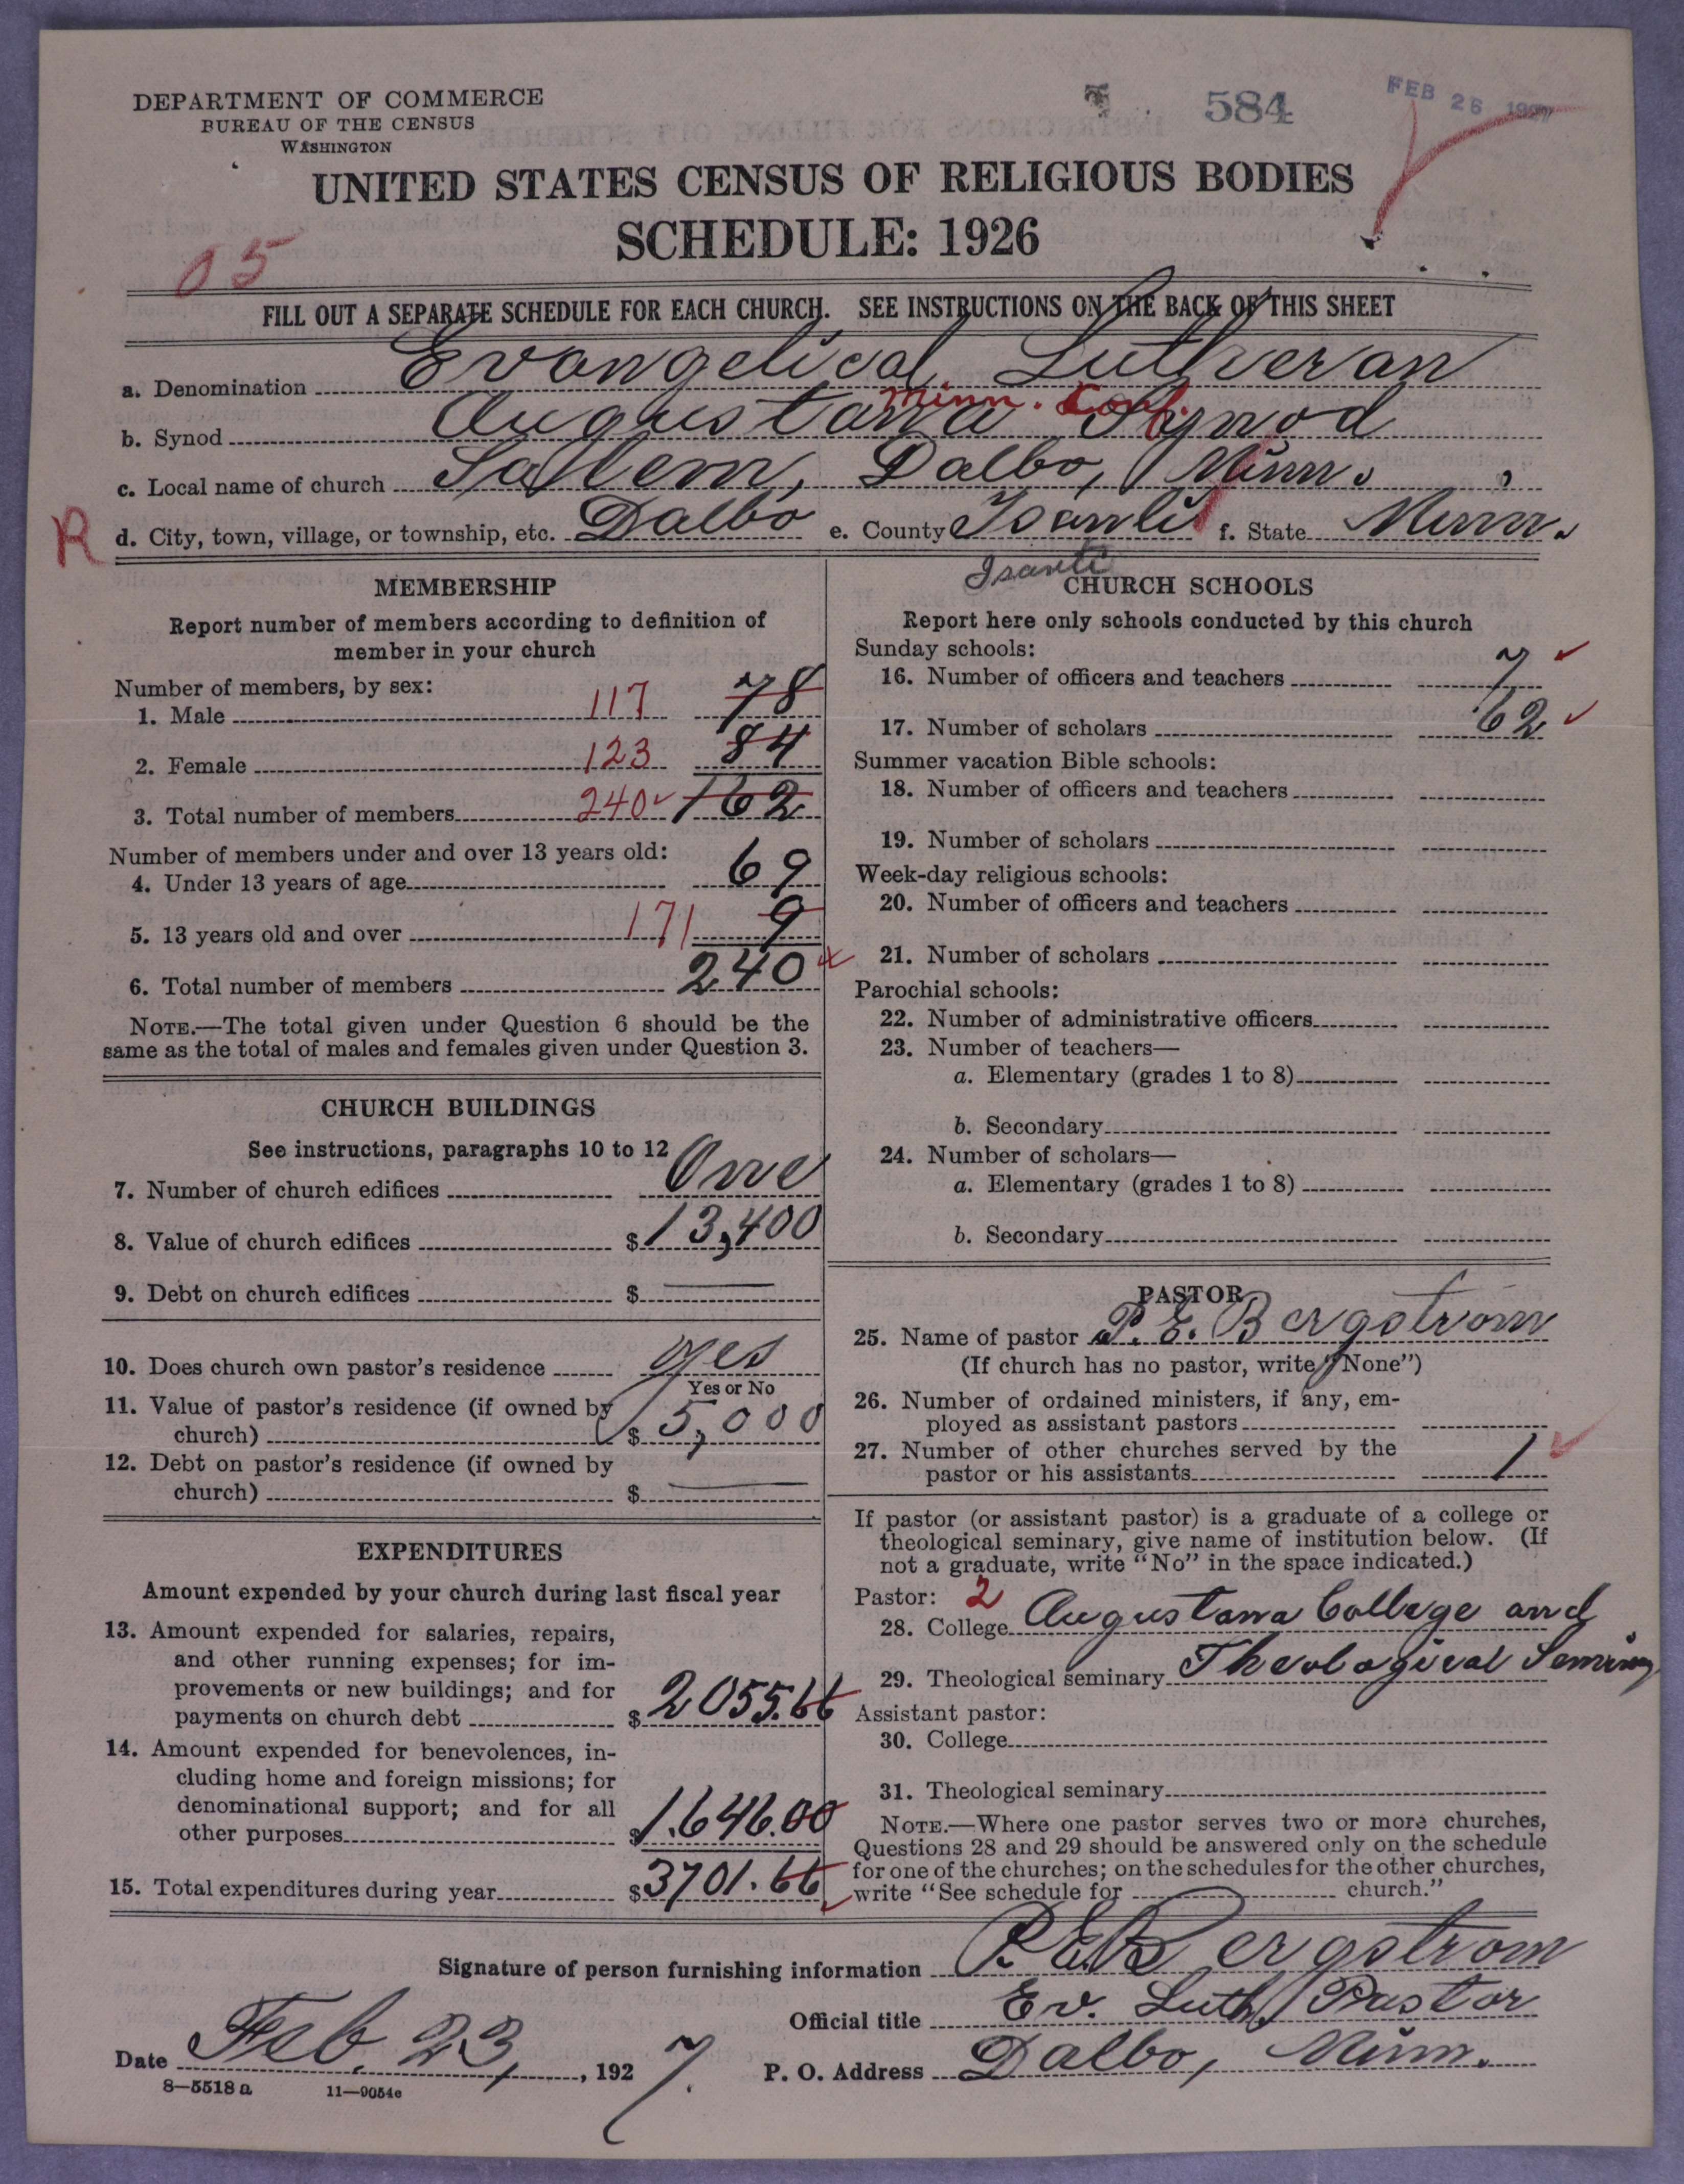 DEPARTMENT OF COMMERCE
BUREAU OF THE CENSUS
WASHINGTON
584
FEB 26 1927
UNITED STATES CENSUS OF RELIGIOUS BODIES
SCHEDULE: 1926
05
FILL OUT A SEPARATE SCHEDULE FOR EACH CHURCH. SEE INSTRUCTIONS ON THE BACK OF THIS SHEET
a. Denomination Evangelical Lutheran
Minn. Conf.
b. Synod Augustana Synod
c. Local name of church Salem, Dalbo, Minn.
R d. City, town, village, or township, etc. Dalbo e. County Isanti f. State Minn.
Isanti
MEMBERSHIP
Report number of members according to definition of
member in your church
Number of members, by sex:
1. Male 117 78
2. Female 123 84
3. Total number of members 240 162
Number of members under and over 13 years old:
4. Under 13 years of age 69
5. 13 years old and over 171 9
6. Total number of members 240
NOTE.—The total given under Question 6 should be the
same as the total of males and females given under Question 3.
CHURCH BUILDINGS
See instructions, paragraphs 10 to 12
7. Number of church edifices One
8. Value of church edifices $13,400
9. Debt on church edifices $ —
10. Does church own pastor's residence yes
Yes or No
11. Value of pastor's residence (if owned by
church) $ 5,000
12. Debt on pastor's residence (if owned by
church) $ —
EXPENDITURES
Amount expended by your church during last fiscal year
13. Amount expended for salaries, repairs,
and other running expenses; for im-
provements or new buildings; and for
payments on church debt $ 2055.66
14. Amount expended for benevolences, in-
cluding home and foreign missions; for
denominational support; and for all
other purposes $1.646.00
15. Total expenditures during year $3701.66
CHURCH SCHOOLS
Report here only schools conducted by this church
Sunday schools:
16. Number of officers and teachers 7
17. Number of scholars 62
Summer vacation Bible schools:
18. Number of officers and teachers
19. Number of scholars
Week-day religious schools:
20. Number of officers and teachers
21. Number of scholars
Parochial schools:
22. Number of administrative officers
23. Number of teachers—
a. Elementary (grades 1 to 8)
b. Secondary
24. Number of scholars—
a. Elementary (grades 1 to 8)
b. Secondary
PASTOR
25. Name of pastor P. E. Bergstrom
(If church has no pastor, write "None")
26. Number of ordained ministers, if any, em-
ployed as assistant pastors
27. Number of other churches served by the
pastor or his assistants 1
If pastor (or assistant pastor) is a graduate of a college or
theological seminary, give name of institution below. (If
not a graduate, write "No" in the space indicated.)
Pastor: 2
28. College Augustana College and
29. Theological seminary Theological Seminary
Assistant pastor:
30. College
31. Theological seminary
NOTE.—Where one pastor serves two or more churches,
Questions 28 and 29 should be answered only on the schedule
for one of the churches; on the schedules for the other churches,
write "See schedule for church."
Signature of person furnishing information P. E. Bergstrom
Official title Ev. Luth Pastor
Date Feb. 23, 1927. P. O. Address Dalbo, Minn.
8—5518 a 11—9054c